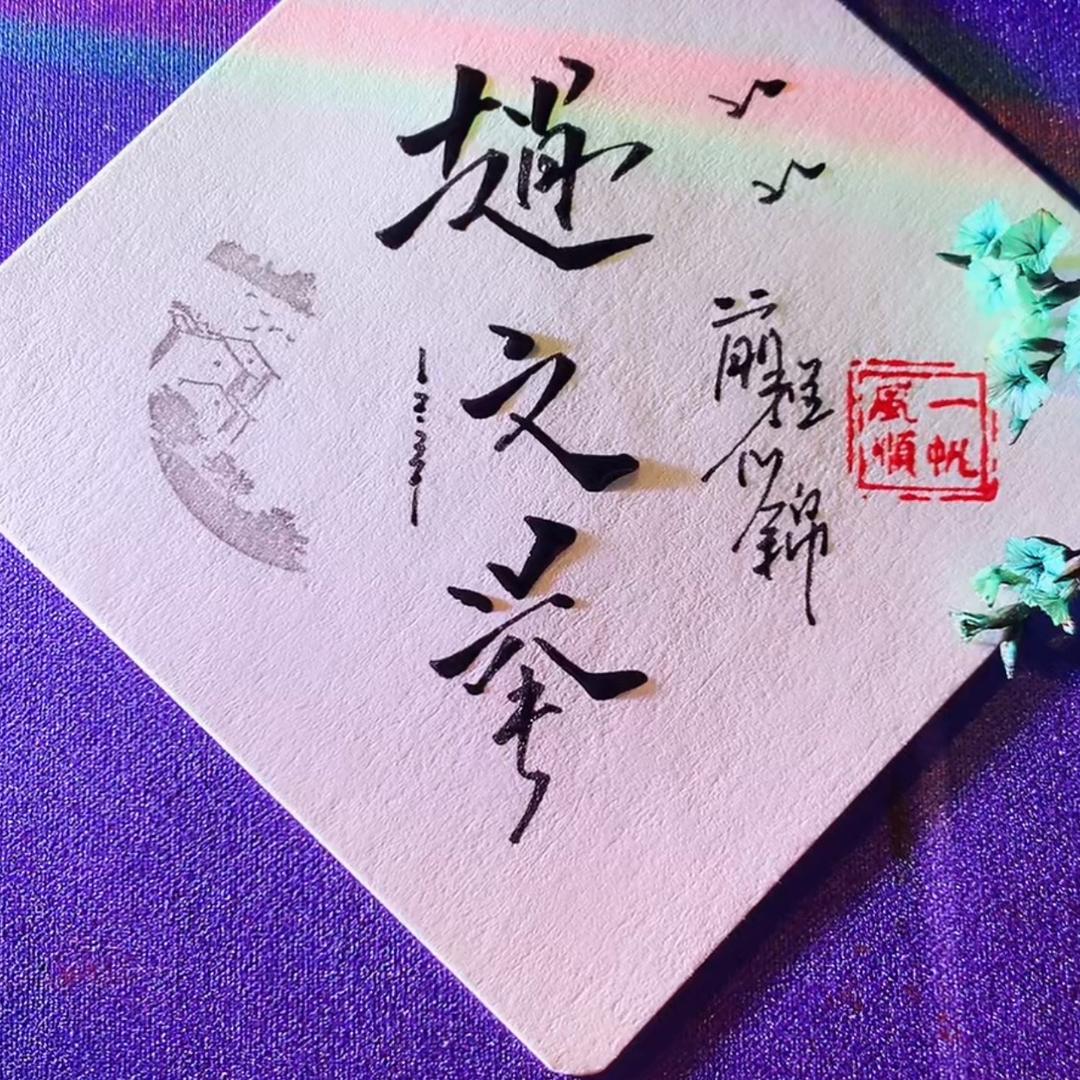 一帆
風順
前程似錦
趙文